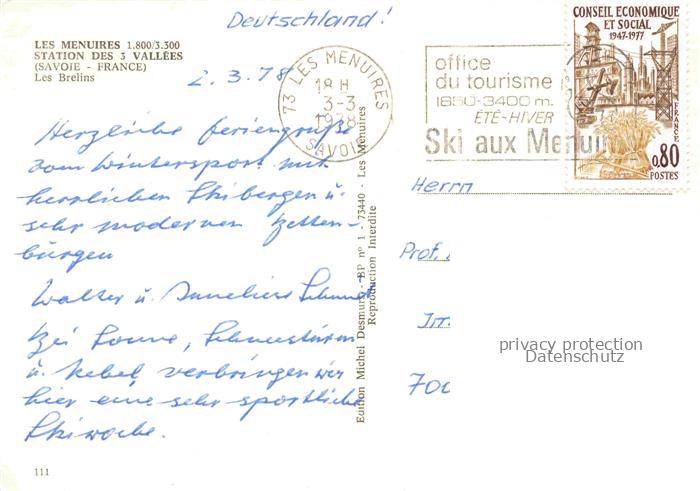 Deutschland!
LES MENUIRES 1.800/3.300
STATION DES 3 VALLÉES
(SAVOIE - FRANCE)
Les Brelins
2.3.78
73 LES MENUIRES
18 H
3-3
1978
SAVOIE
office
du tourisme
1850-3400 m.
ÉTÉ-HIVER
Ski aux Menuires
CONSEIL ECONOMIQUE
ET SOCIAL
1947-1977
FRANCE
0,80
POSTES
Herzliche Feriengrüße
vom Wintersport mit
herrlichen Skibergen u.
sehr modernen Betten-
burgen
Walter u. Annelies
Bei Sonne, Schneesturm
u. Nebel verbringen wir
hier eine sehr sportliche
Skiwoche.
Edition Michel Desmurs - BP nº 1 - 73440 - Les Menuires
Reproduction Interdite
Herrn
Prof.
700
privacy protection
Datenschutz
111